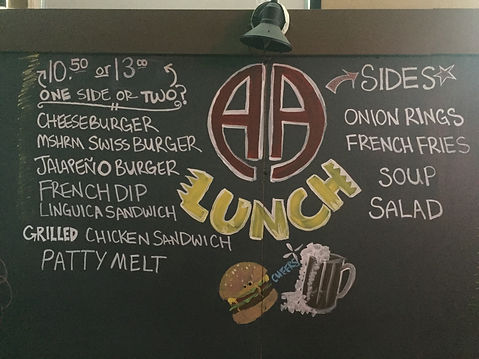 10.50 or 13.00
ONE SIDE OR TWO?
CHEESEBURGER
MSHRM SWISS BURGER
JALAPEÑO BURGER
FRENCH DIP
LINGUICA SANDWICH
GRILLED CHICKEN SANDWICH
PATTY MELT
AA
LUNCH
CHEERS!
SIDES
ONION RINGS
FRENCH FRIES
SOUP
SALAD